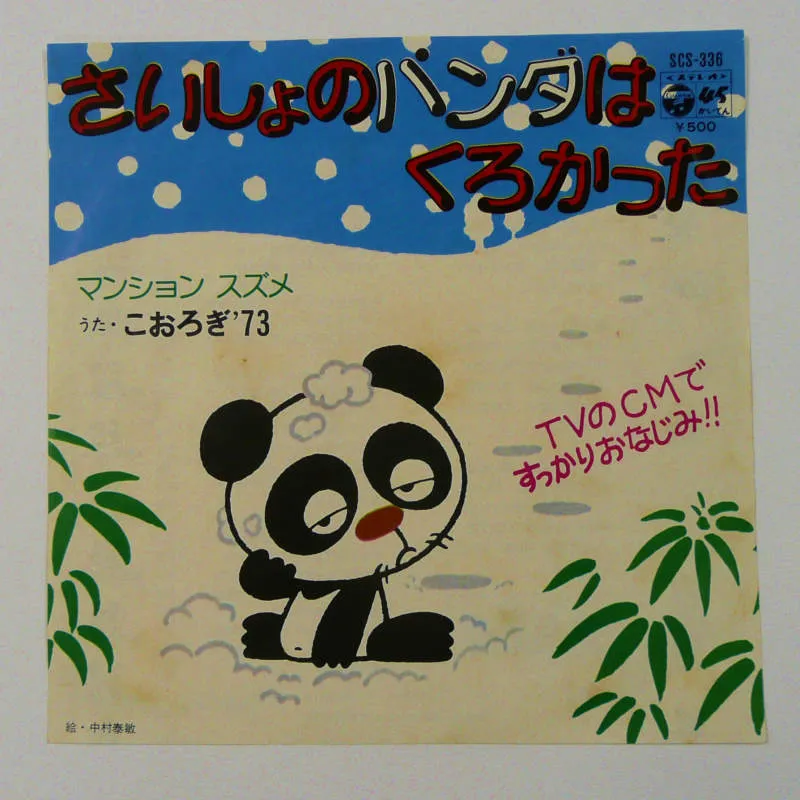 さいしょのパンダは
くろかった
SCS-336
<ステレオ>
45
かいてん
¥500
マンション スズメ
うた・こおろぎ'73
TVのCMで
すっかりおなじみ!!
絵・中村泰敏